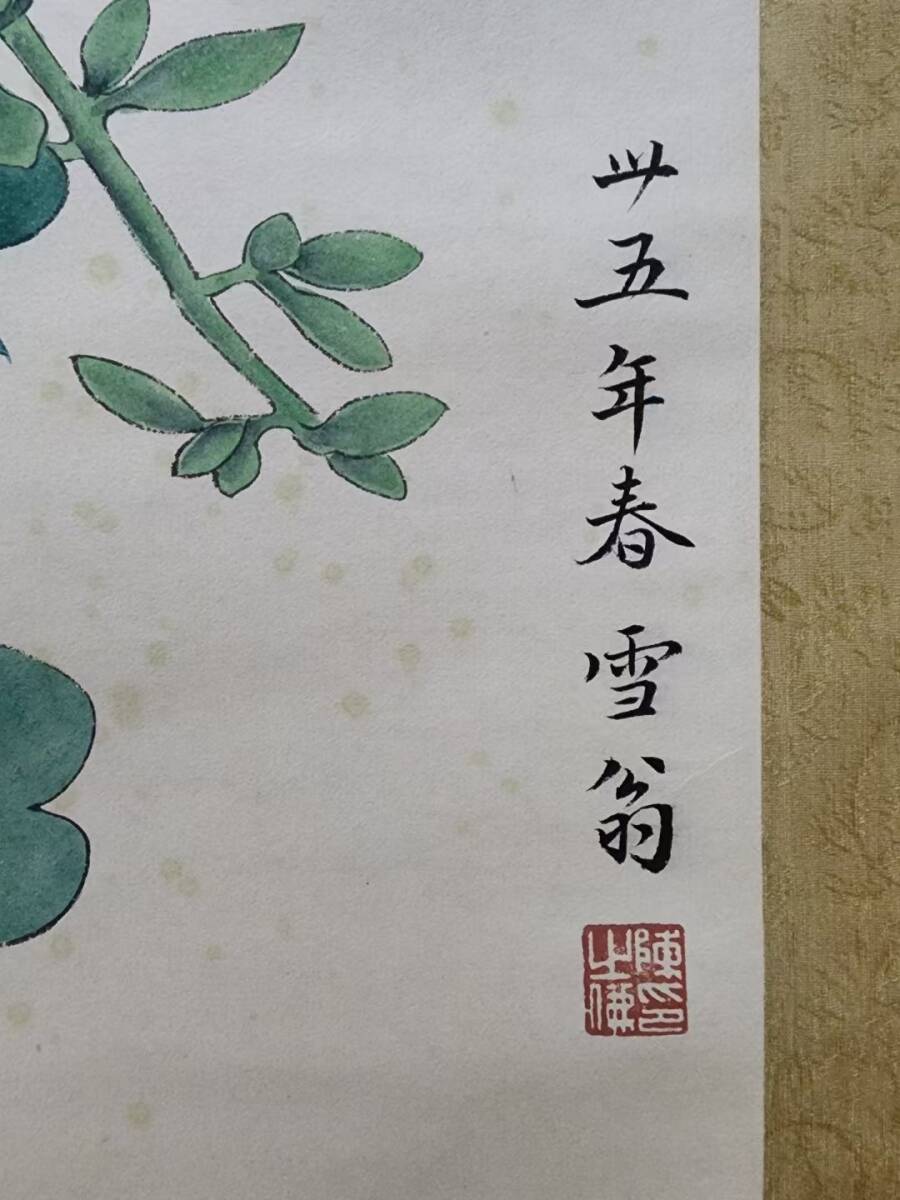 卅五年春 雪翁
陳印之佛